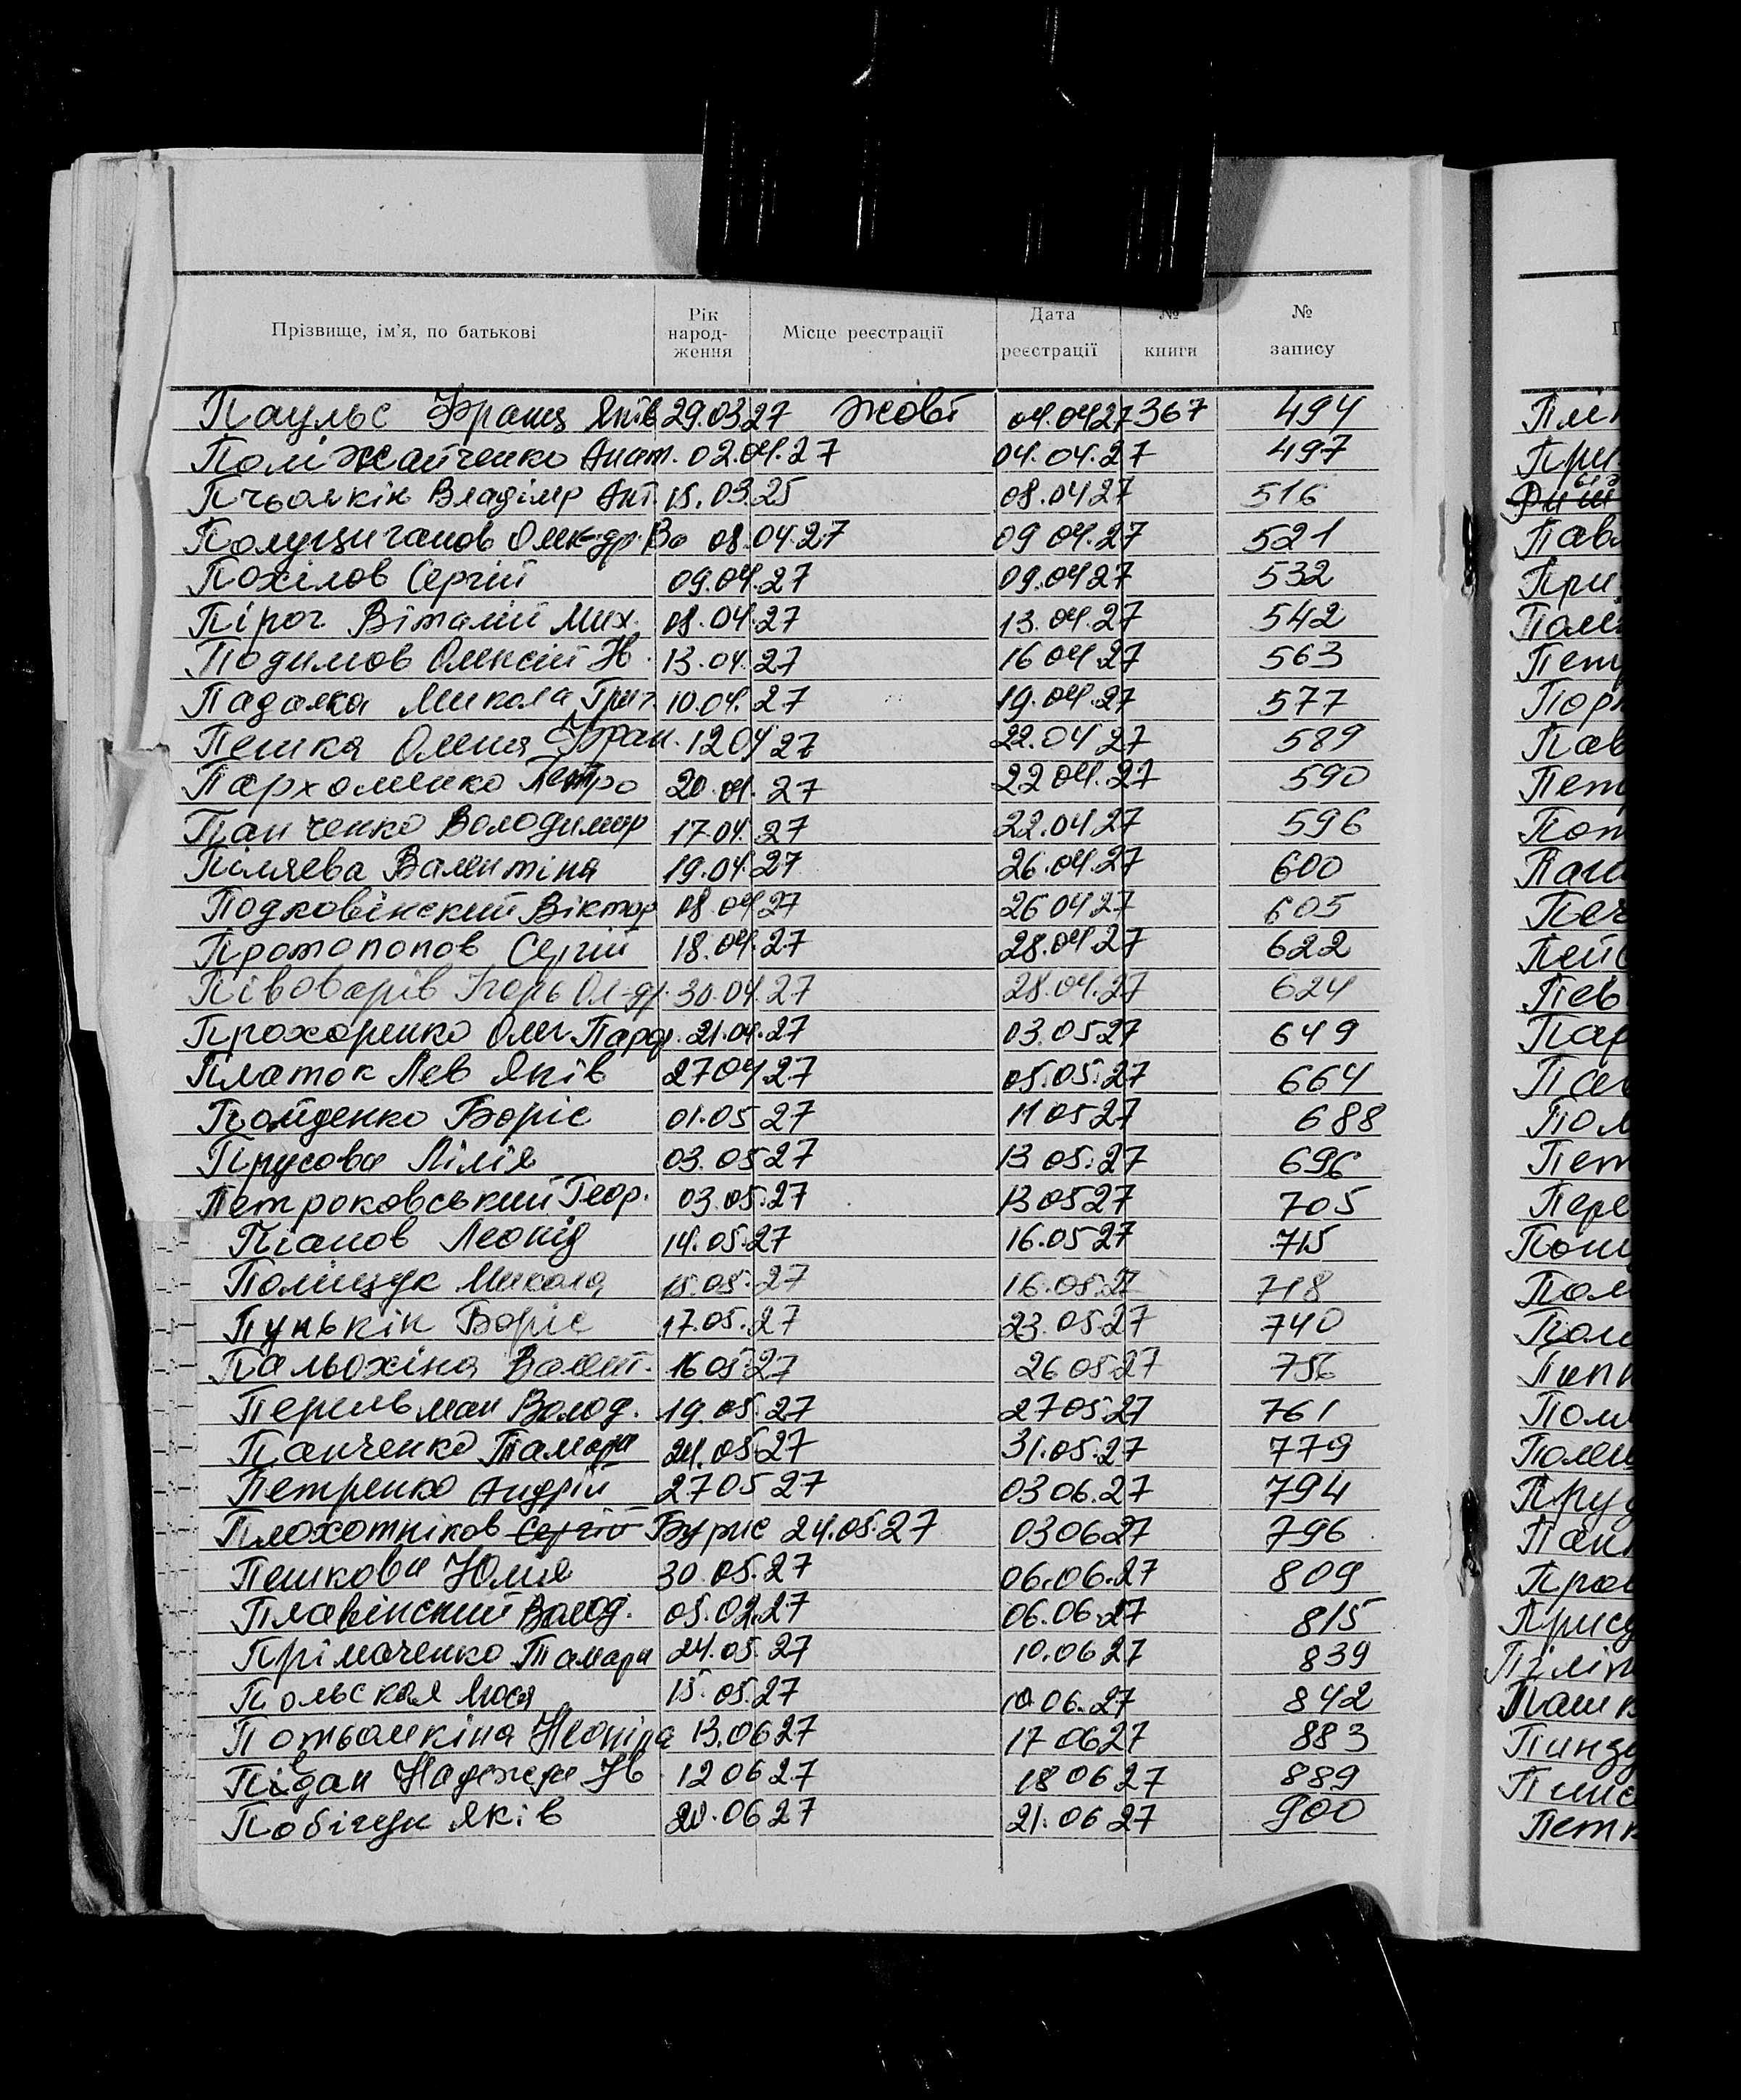 Прізвище, ім'я, по батькові Рік народ-ження Місце реєстрації Дата реєстрації № книги № запису
Паульс Франц Яків 29.03.27 Жовт 04.04.27 367 494
Поліжайченко Анат. 02.04.27 04.04.27 497
Пчьолкін Владімр Ант. 15.03.25 08.04.27 516
Полуциганов Олек-др. Во 08.04.27 09.04.27 521
Похілов Сергій 09.04.27 09.04.27 532
Пірог Віталій Мих. 08.04.27 13.04.27 542
Подимов Олексій Н. 13.04.27 16.04.27 563
Падалка Микола Григ. 10.04.27 19.04.27 577
Пешка Олена Фран. 12.04.27 22.04.27 589
Пархоменко Петро 20.04.27 22.04.27 590
Панченко Володимир 17.04.27 22.04.27 596
Піляева Валентіна 19.04.27 26.04.27 600
Подковінский Віктор 08.04.27 26.04.27 605
Протопопов Сергій 18.04.27 28.04.27 622
Півоварів Ігорь Ол-др. 30.04.27 28.04.27 624
Прохоренко Олег 21.04.27 03.05.27 649
Платок Лев Яків 27.04.27 05.05.27 664
Пойденко Боріс 01.05.27 11.05.27 688
Прусова Лілія 03.05.27 13.05.27 696
Петроковський Геор. 03.05.27 13.05.27 705
Піанов Леонід 14.05.27 16.05.27 715
Поліщук Микола 15.05.27 16.05.27 718
Пунькін Боріс 17.05.27 23.05.27 740
Пальохіна Валент. 16.05.27 26.05.27 756
Перельман Волод. 19.05.27 27.05.27 761
Панченко Тамара 24.05.27 31.05.27 779
Петренко Андрій 27.05.27 03.06.27 794
Плохотніков Сергій Бурис 24.05.27 03.06.27 796
Пешкова Юлия 30.05.27 06.06.27 809
Плавінский Волод. 05.02.27 06.06.27 815
Прімаченко Тамара 24.05.27 10.06.27 839
Польская Люся 15.05.27 10.06.27 842
Потьомкіна 13.06.27 17.06.27 883
Надежда Н 12.06.27 18.06.27 889
Побігун Яків 20.06.27 21.06.27 900